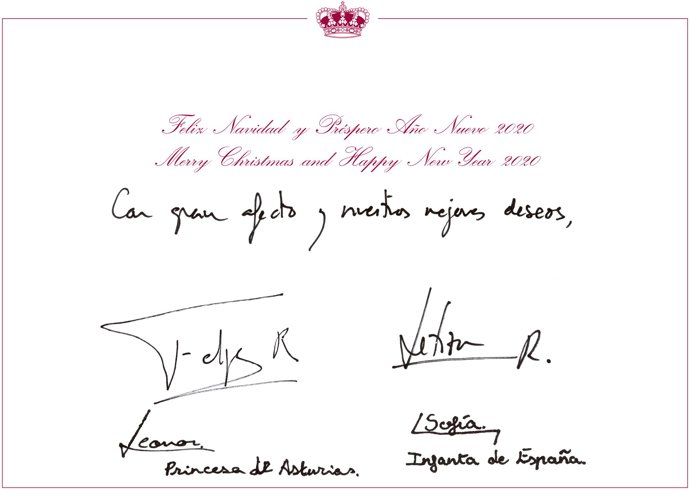 Feliz Navidad y Próspero Año Nuevo 2020
Merry Christmas and Happy New Year 2020
Con gran afecto y nuestros mejores deseos,
Felipe R
Letizia R.
Leonor.
Princesa de Asturias.
Sofía.
Infanta de España.